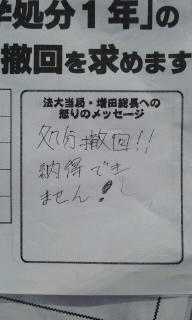 学処分1年」の
撤回を求めます
法大当局・増田総長への
怒りのメッセージ
処分撤回!!
納得でき
ません!